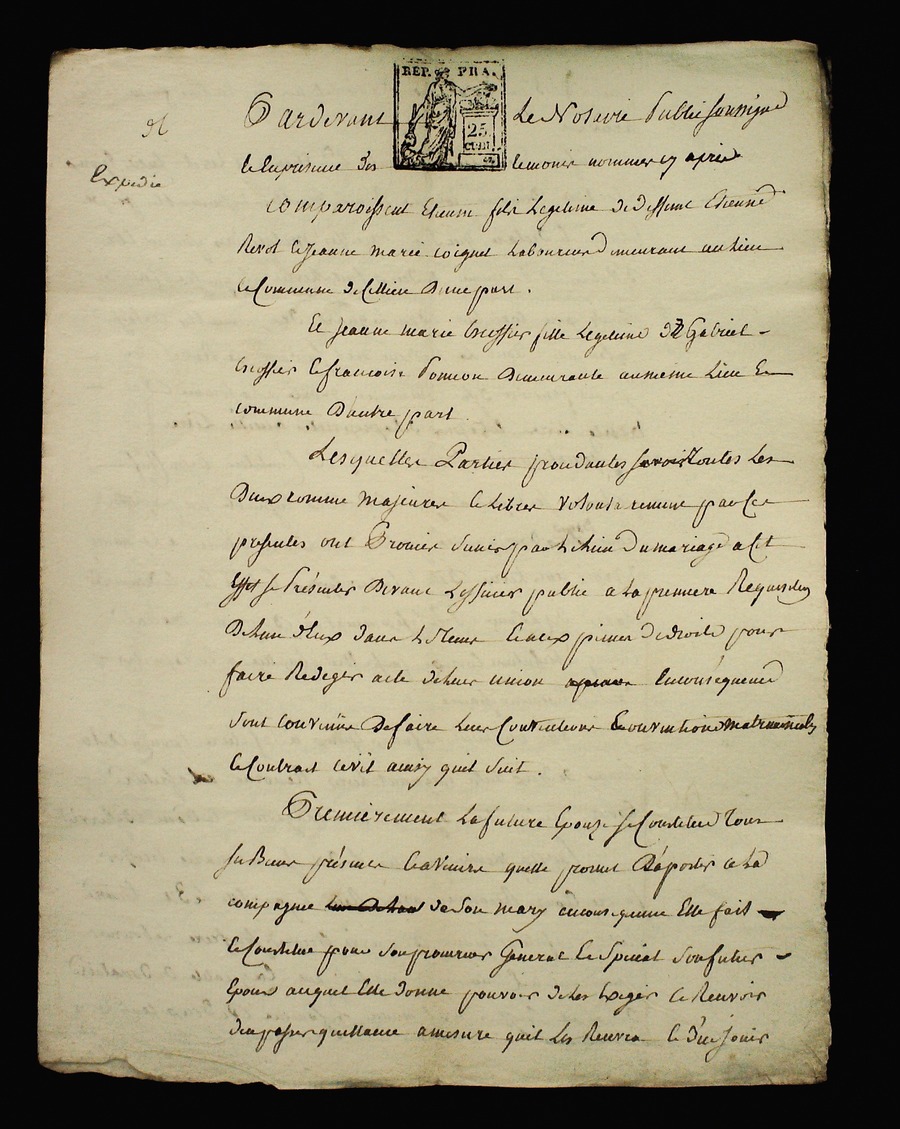 REP. FRA.
25
CENT.
Expedié
Pardevant Le Notaire Public soussigné
et en presence des temoins nommes cy apres
comparoissent Etienne fils Legitime de deffunt Etienne
Revol et Jeanne marie coignet Laboureur demeurant au Lieu
et Commune de Cellieu D'une part.
Et Jeanne marie fille Legitime de Gabriel
et francoise demeurante au meme Lieu Et
commune D'autre part
Lesquelles Parties procedantes savoir toutes Les
Deux comme Majeures et Libres volontairement par Ces
presentes ont Promis S'unir par Le Lien Du mariage a Cet
Effet se Présenter Devant L'officier public a La premiere Requisition
De L'une d'Eux dans Le tems et aux peines de droit pour
faire Rediger acte de Leur union En consequence
sont convenus De faire Leurs Conventions matrimoniales
Et Contrat civil ainsy qu'il suit.
Premièrement La future Epouze se Constitue Tous
ses Biens présents Et a Venirs quelle promet D'aporter a La
compagnie de Son mary en consequence Elle fait
Et Constitue pour Son procureur Général Et Special Son futur
Epoux auquel Elle donne pouvoir de Les Exiger Et Recevoir
d'en passer quittance a mesure qu'il Les Recevra Et D'en Jouir